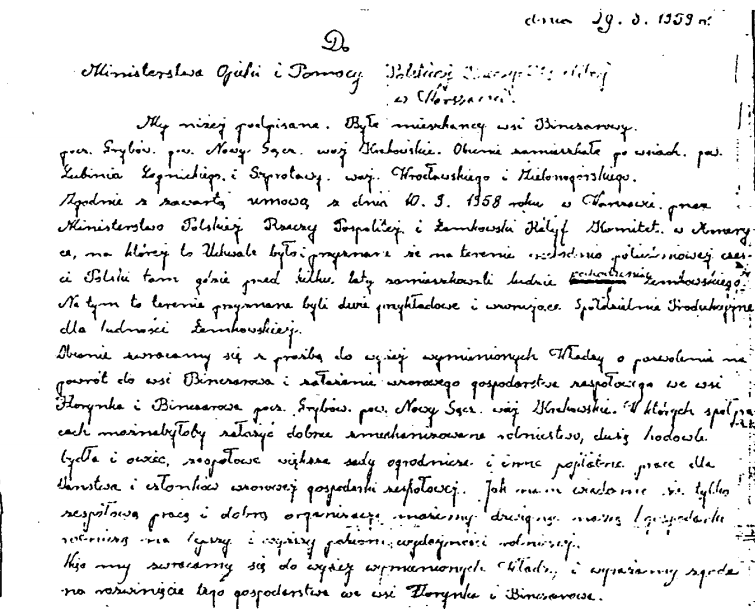 dnia 29. 3. 1959 r.
Do
Ministerstwa Opieki i Pomocy Polskiej Rzeczypospolitej
w Warszawie.
My niżej podpisane. Byłe mieszkancy wsi Binczarowy.
pocz. Grybów. pow. Nowy Sącz. woj. Krakowskie. Obecnie zamieszkałe po wsiach. pow.
Lubinia Legnickiego. i Szprotawy. woj. Wrocławskiego i Zielonogorskiego.
Zgodnie z zawartą umową z dnia 10. 9. 1958 roku w Warszawie. przez
Ministerstwo Polskiej Rzeczy Pospolitej i Łemkowski Komitet. w Amery-
ce, na której to Uchwale było przyznane że na terenie południowej częs-
ci Polski tam gdzie pred kilku laty zamieszkowali ludzie pochodzenia Łemkowskiego.
Na tym to terenie przyznane byli duże przykładowe i wzorujące. Spółdzielnie Produkcyjne
dla ludności Łemkowskiej.
Obecnie zwracamy się z prośbą do wyżej wymienionych Władzy o pozwolenie na
powrót do wsi Binczarowa i założenie wzorowego gospodarstwa zespołowego we wsi
Florynka i Binczarowa pocz. Grybów. pow. Nowy Sącz. woj. Krakowskie. W których
cach możnabyłoby założyć dobrze zmechanizowane rolnictwo, dużą hodowle
bydła i owiec, zespołowe większe sady ogrodnicze i inne popłatne prace dla
Państwa i członków wzorowej gospodarki zespołowej. Jak nam wiadomo że tylko
zespołową pracą i dobrą organizacją możemy naszą gospodarkę
rolniczą na lepszy i wyższy poziom wydajności rolniczej.
my zwracamy się do wyżej wymienionych Władzy i wyrażamy zgode
na rozwinięcie tego gospodarstwa we wsi Florynka i Binczarowa.